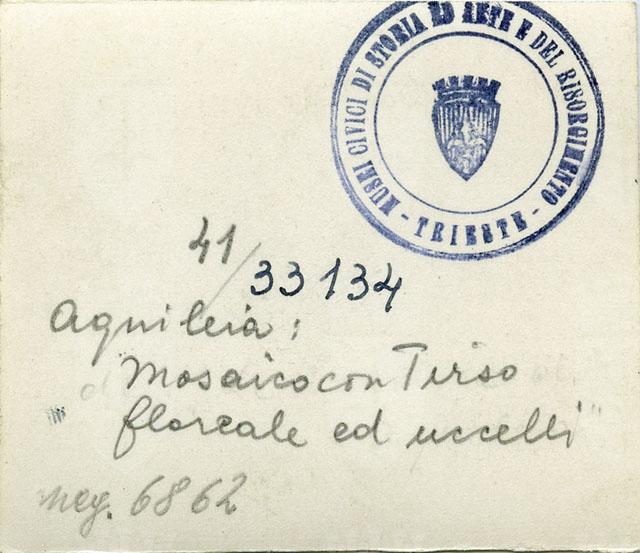 MUSEI CIVICI DI STORIA ED ARTE E DEL RISORGIMENTO
- TRIESTE -
41/33134
Aquileia:
"Mosaico con Tirso
floreale ed uccelli"
neg. 6862